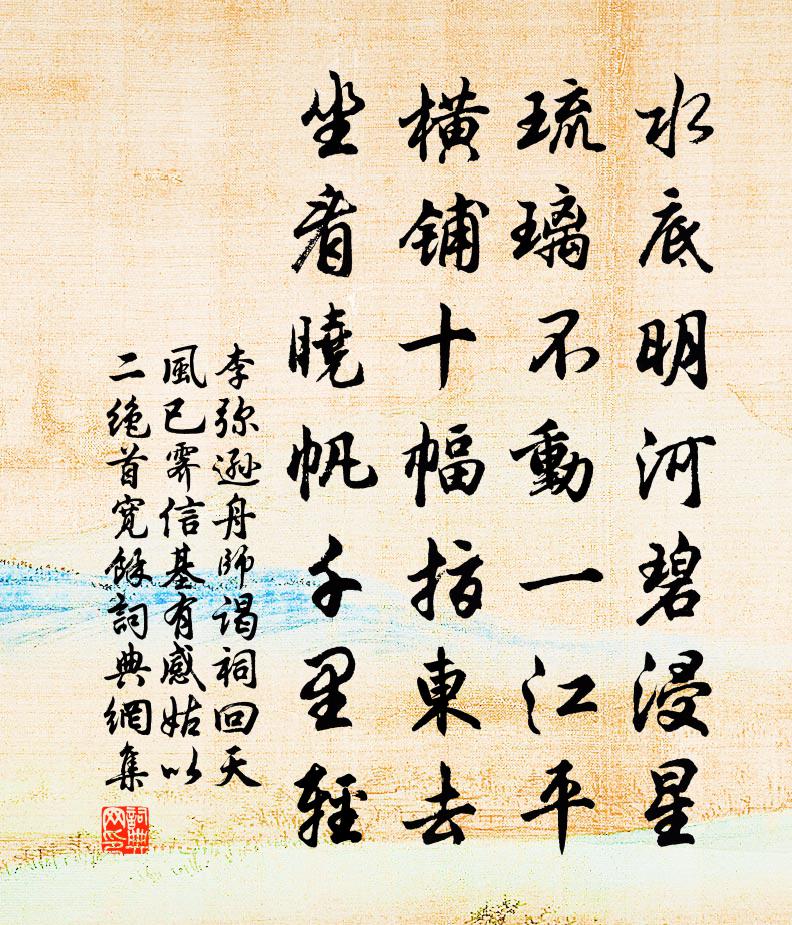 水底明河碧浸星
琉璃不動一江平
橫鋪十幅指東去
坐看曉帆千里輕
李弥遜舟師謁祠回天
風已霽信基有感姑以
二絶首寬餘詞典網集
詞典
网印